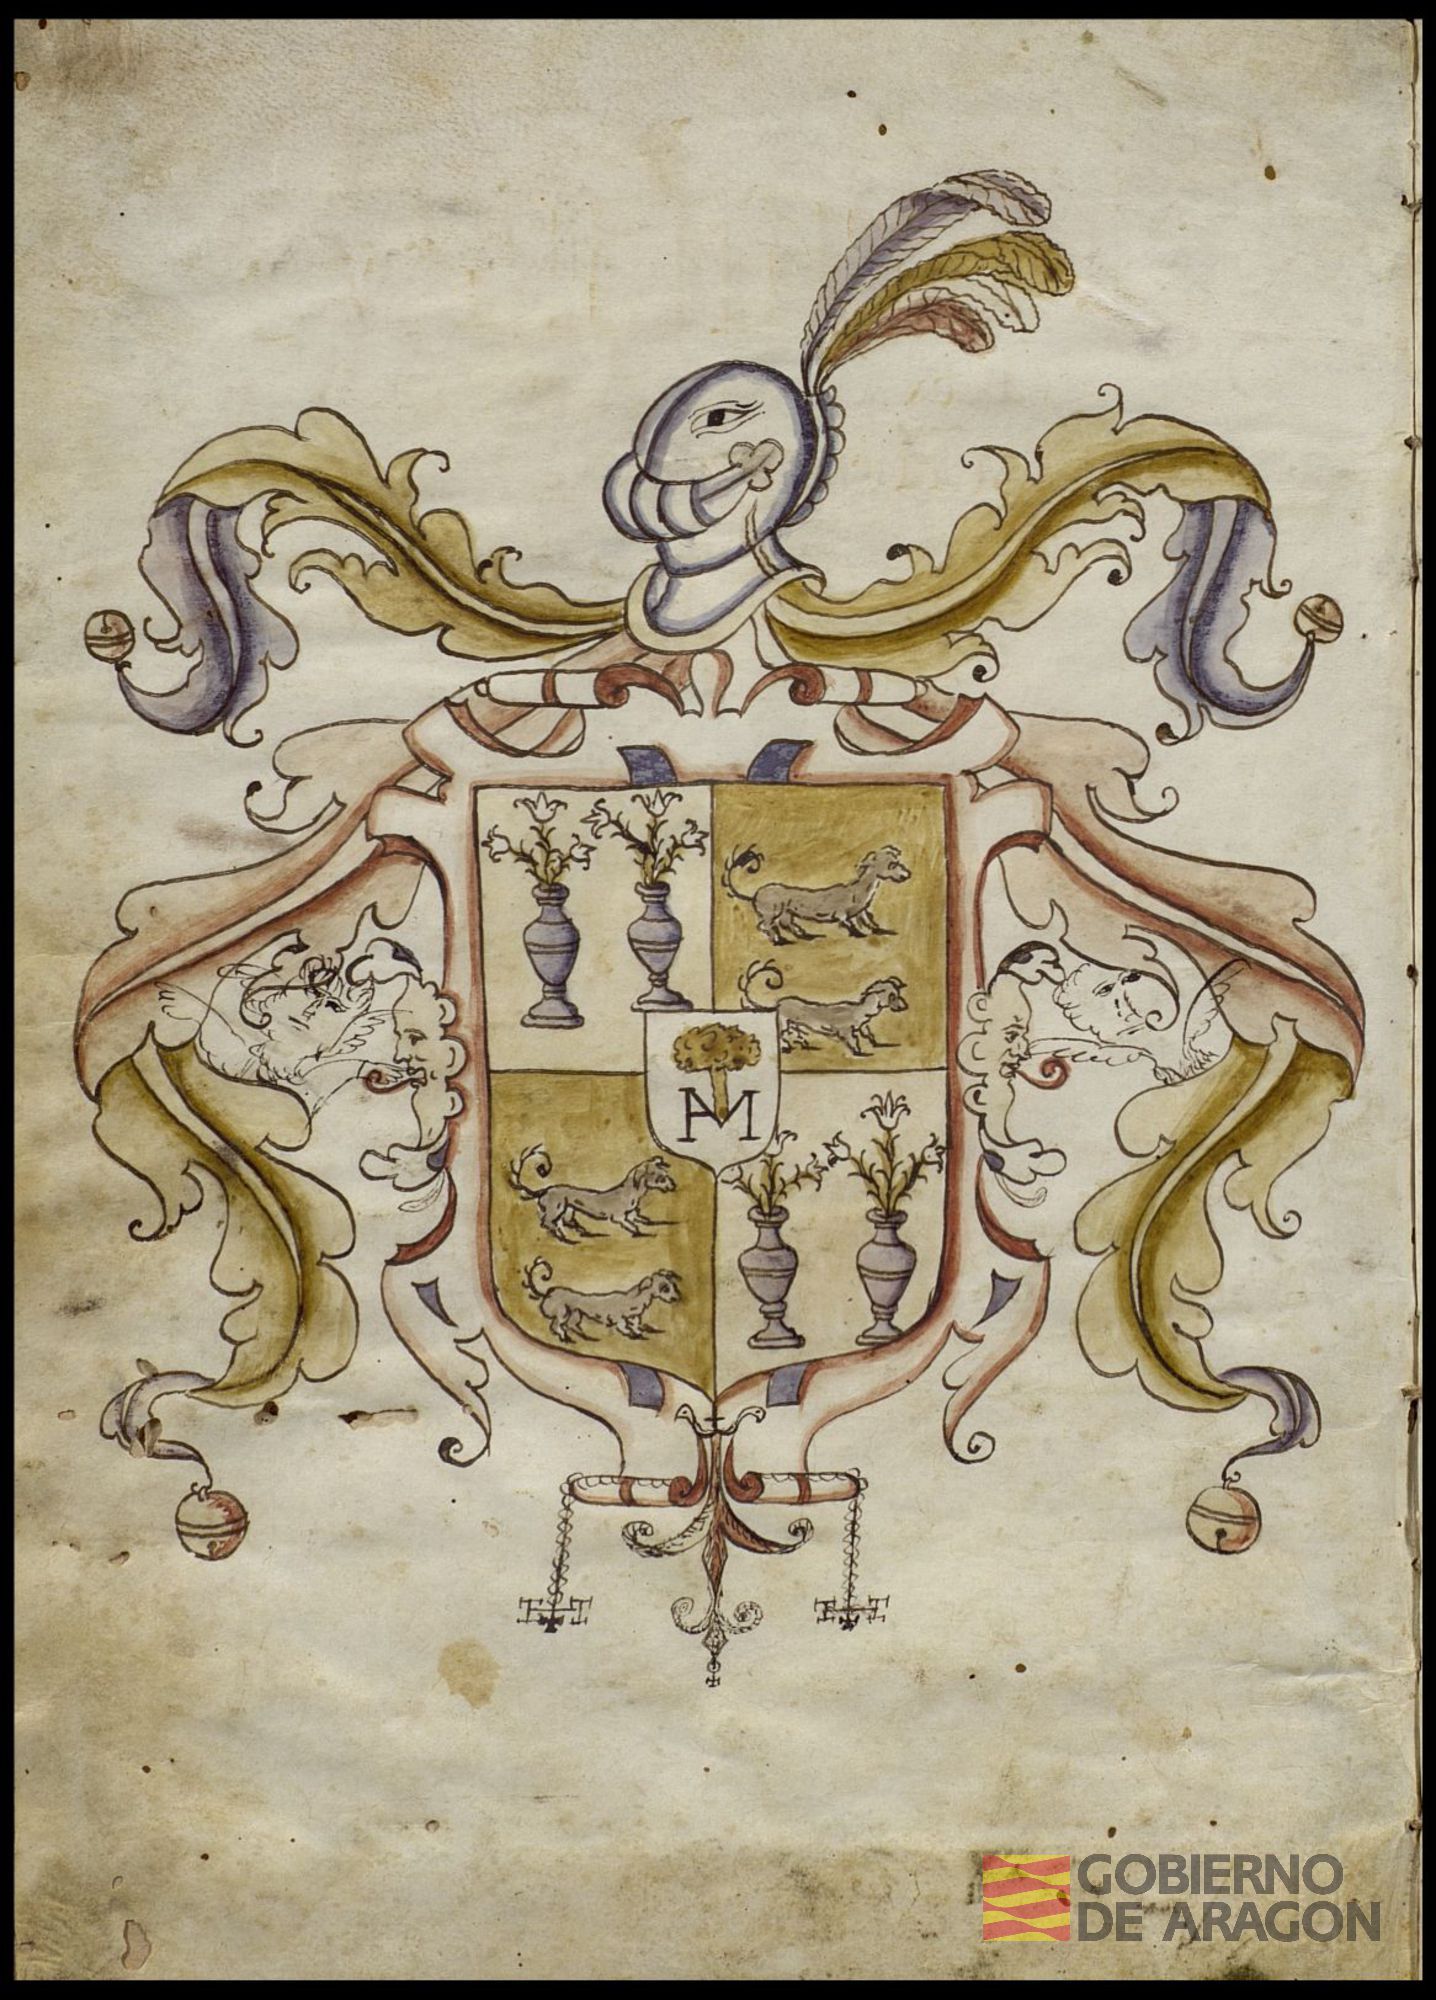 AM
GOBIERNO
DE ARAGON